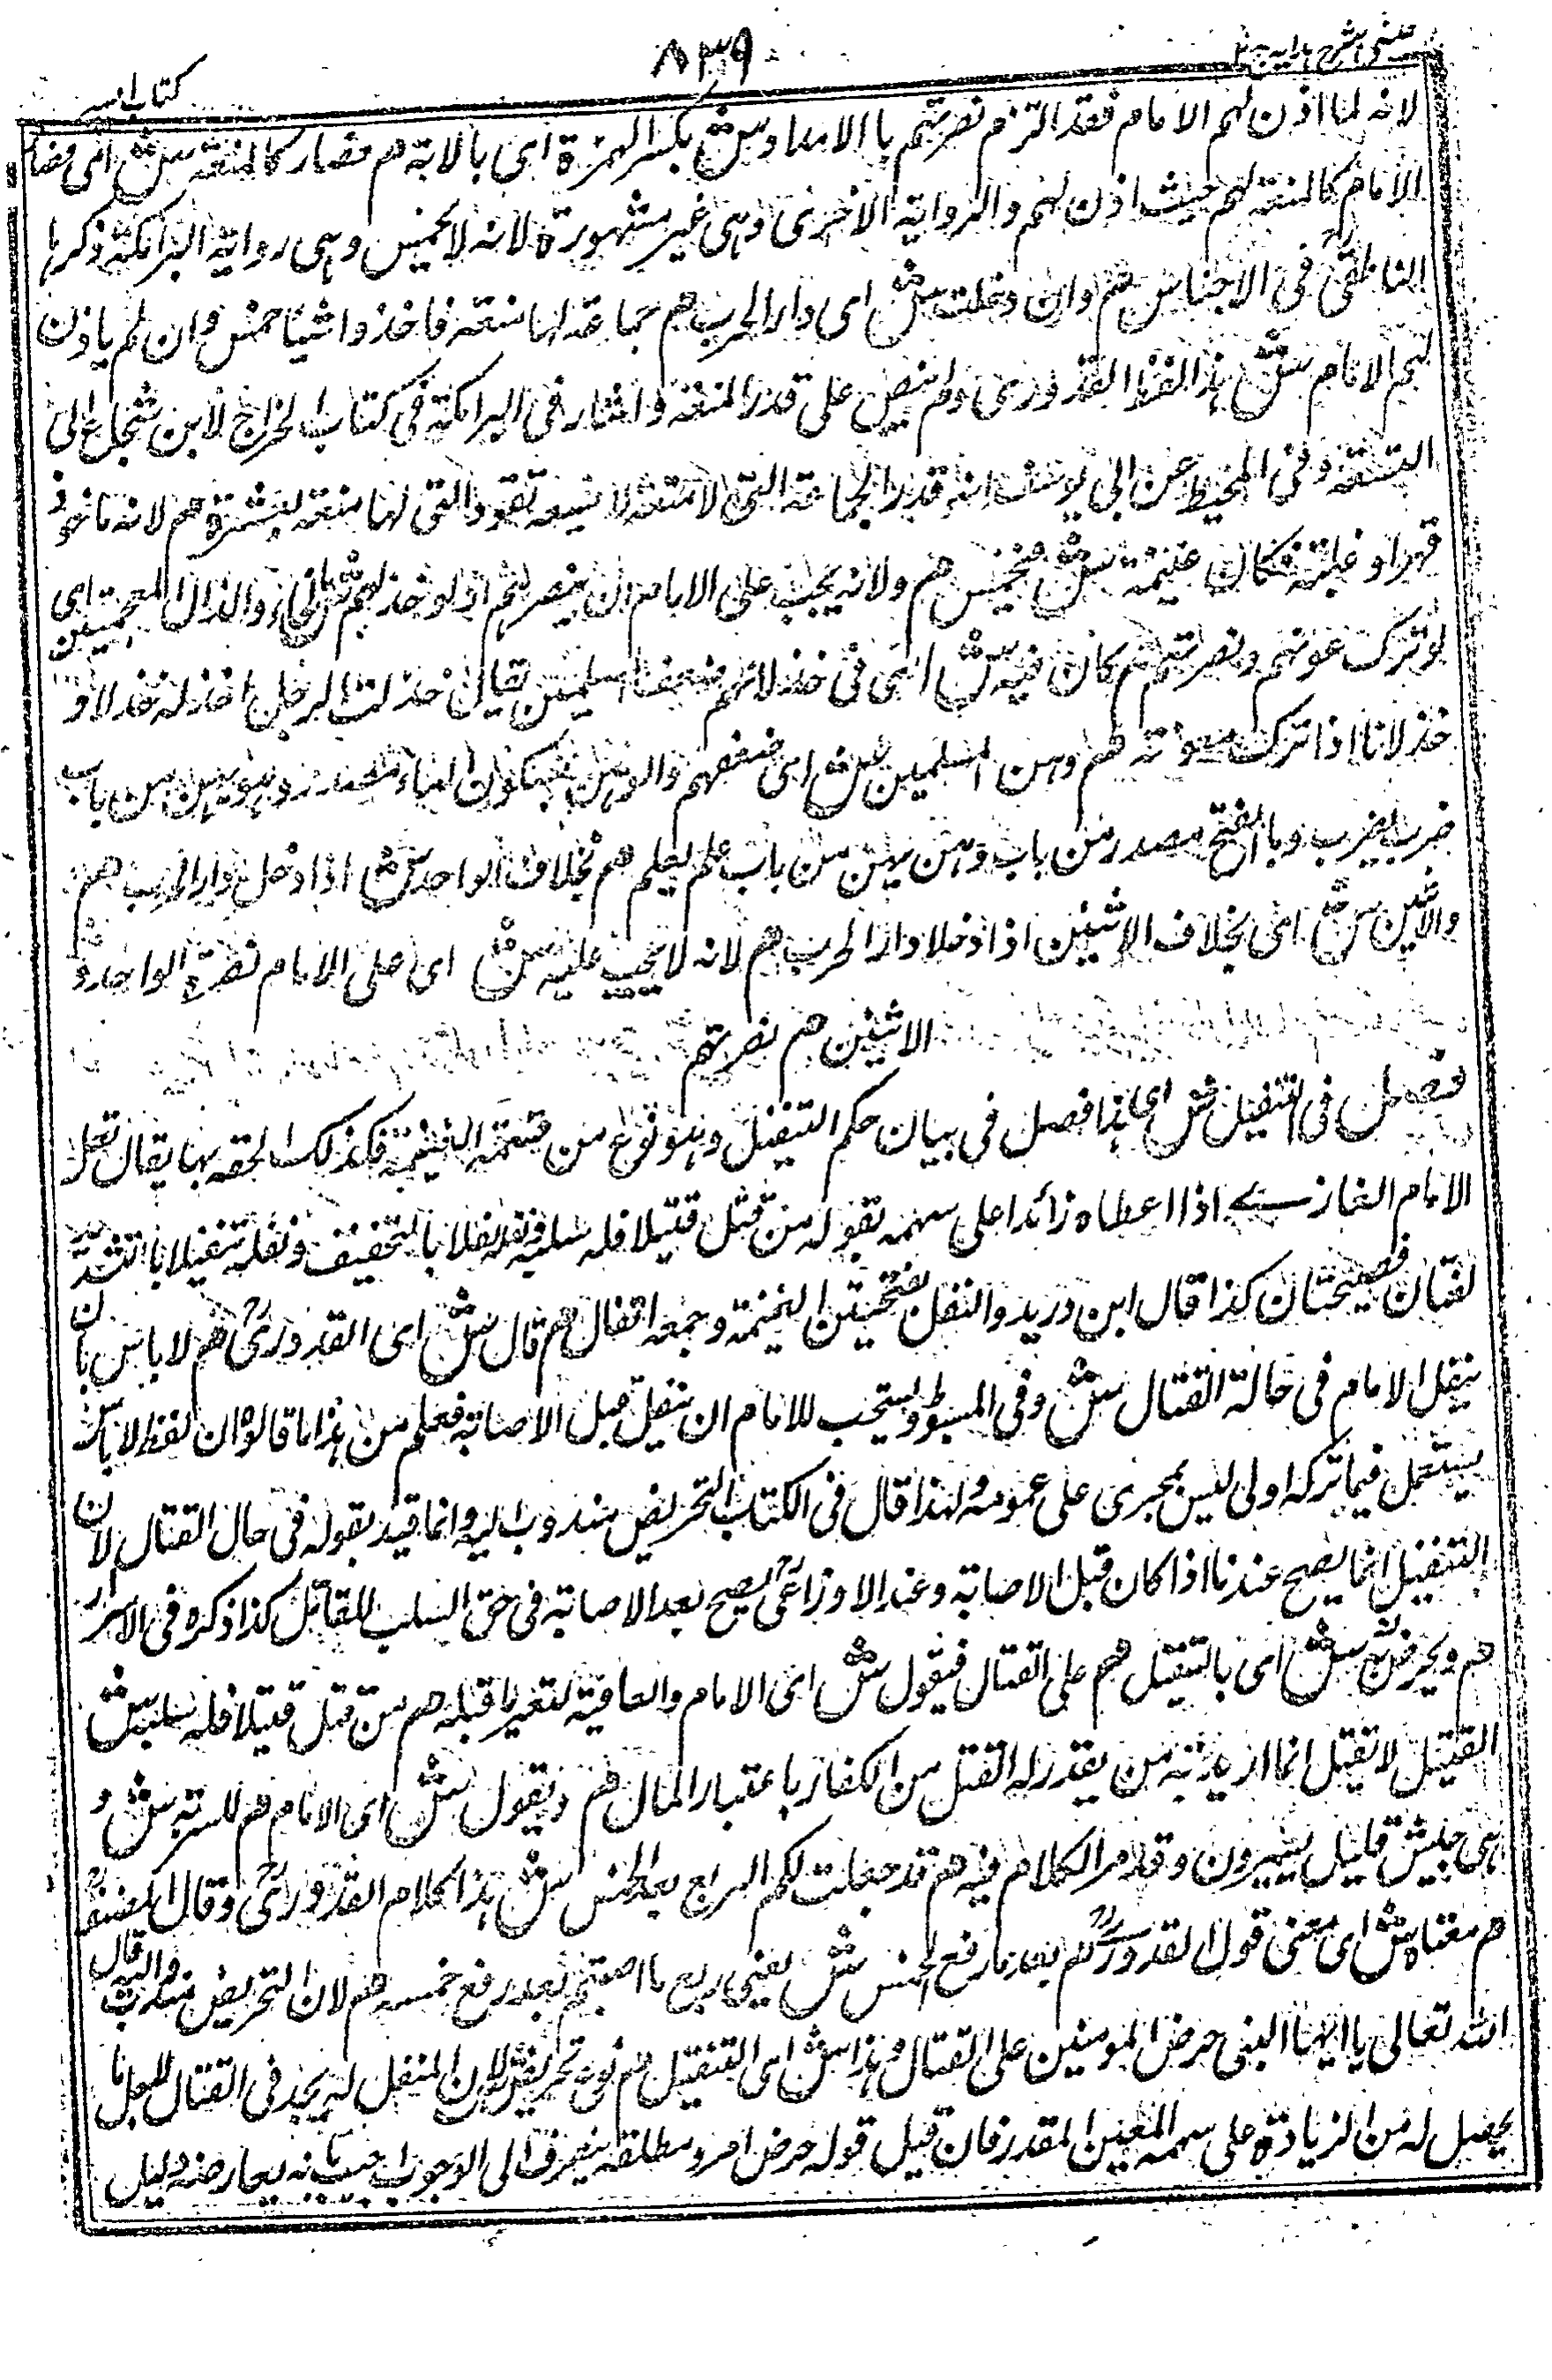 عینی شرح ہدایہ ج ۲
۸۳۹
کتاب السیر
لانه لما اذن لهم الامام فقد التزم نصرتهم بالامداد ش بکسر الهمزة ای بالا بة هم فصار کالمنعة ش ای فصار
الامام کالمنعة لهم حیث اذن لهم والروایة الاخری وهی غیر مشهورة لانه لا یخمس وهی روایة البرامکة ذکرها
الناطفی فی الاجناس هم وان دخلت ش ای دار الحرب هم جماعة لها منعة فاخذوا شیئا خمس وان لم یاذن
لهم الامام ش هذا لفظ القدوری ولم ینص علی قدر المنعة واشار فی البرامکة فی کتاب الخراج لابن شجاع الی
التسعة وفی المحیط عن ابی یوسف انه قدر الجماعة التی لا منعة لها بسبعة نفر والتی لها منعة بعشرة هم لانه ماخوذ
قهرا وغلبة فکان غنیمة ش فیخمس هم ولانه یجب علی الامام ان ینصرهم اذ لو خذلهم ش بالخاء والذال المعجمتین ای
لو ترک عونهم ونصرتهم هم کان فیه ش ای فی خذلانهم ضعف المسلمین یقال خذلت الرجل اخذله خذلا و
خذلانا اذا ترک معونته هم وهن المسلمین ش ای ضعفهم والوهن بسکون الهاء مصدر وهن یهن من باب
ضرب یضرب وبالفتح مصدر من باب وهن یهن من باب علم یعلم هم بخلاف الواحد ش اذا دخل دار الحرب هم
والاثنین ش ای بخلاف الاثنین اذا دخلا دار الحرب هم لانه لا یجب علیه ش ای علی الامام نصرة الواحد و
الاثنین هم نصرتهم
فصل فی التنفیل ش ای هذا فصل فی بیان حکم التنفیل وهو نوع من قسمة الغنیمة فکذلک الحقه بها یقال نفل
الامام الغازی اذا اعطاه زائدا علی سهمه بقوله من قتل قتیلا فله سلبه ونفله نفلا بالتخفیف ونفله تنفیلا بالتشدید
لغتان فصیحتان کذا قال ابن درید والنفل بفتحتین الغنیمة وجمعه انفال هم قال ش ای القدوری هم لا باس بان
ینفل الامام فی حالة القتال ش وفی المبسوط ویستحب للامام ان ینفل قبل الاصابة فعلم من هذا ما قالوا ان لفظ لا باس
یستعمل فیما ترکه اولی لیس بمجری علی عمومه ولهذا قال فی الکتاب التحریض مندوب الیه وانما قید بقوله فی حال القتال لان
التنفیل انما یصح عندنا اذا کان قبل الاصابة وعند الاوزاعی یصح بعد الاصابة فی حق السلب للقاتل کذا ذکره فی الاسرار
هم ویحرض به ش ای بالتنفیل هم علی القتال فیقول ش ای الامام والعافیة لتغیر ما قبله هم من قتل قتیلا فله سلبه ش
القتیل لا یقتل انما ارید به من یقدر له القتل من الکفار باعتبار المال هم ویقول ش ای الامام هم للسریة ش و
هی جیش قلیل یسیرون وقد مر الکلام فیه هم قد جعلت لکم الربع بعد الخمس ش هذا کلام القدوری وقال المصنف
هم معناه ش ای معنی قول القدوری هم بعد ما رفع الخمس ش یعنی ربع ما اصبتم بعد رفع خمسه هم لان التحریض مندوب الیه قال
الله تعالی یا ایها النبی حرض المومنین علی القتال وهذا ش ای التنفیل هم نوع تحریض لان المنفل له یجد فی القتال لاجل ما
یحصل له من الزیادة علی سهمه المعین المقدر فان قیل قوله حرض امر ومطلقه ینصرف الی الوجوب اجیب بانه یعارضه دلیل